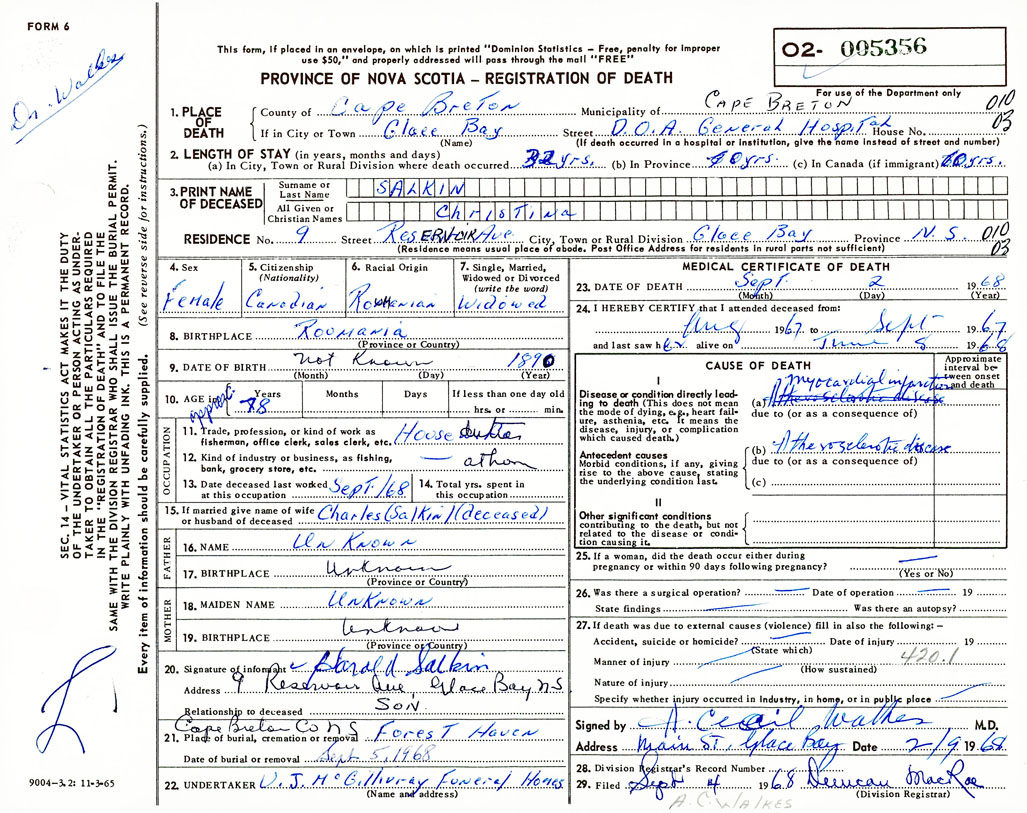 FORM 6
Dr. Walkes
O2- 005356
This form, if placed in an envelope, on which is printed "Dominion Statistics – Free, penalty for improper
use $50," and properly addressed will pass through the mail "FREE"
PROVINCE OF NOVA SCOTIA – REGISTRATION OF DEATH
For use of the Department only
010
03
1. PLACE OF DEATH
County of Cape Breton Municipality of CAPE BRETON
If in City or Town Glace Bay Street D.O.A. General Hospital House No.
(Name) (If death occurred in a hospital or institution, give the name instead of street and number)
2. LENGTH OF STAY (in years, months and days)
(a) In City, Town or Rural Division where death occurred yrs. (b) In Province yrs. (c) In Canada (if immigrant) yrs.
3. PRINT NAME OF DECEASED
Surname or Last Name SALKIN
All Given or Christian Names Christina
RESIDENCE No. 9 Street RESERVOIR Ave. City, Town or Rural Division Glace Bay Province N.S. 010
03
(Residence means usual place of abode. Post Office Address for residents in rural parts not sufficient)
4. Sex
Female
5. Citizenship
(Nationality)
Canadian
6. Racial Origin
7. Single, Married,
Widowed or Divorced
(write the word)
Widowed
8. BIRTHPLACE Roumania
(Province or Country)
9. DATE OF BIRTH not Known 1890
(Month) (Day) (Year)
10. AGE in approx. Years 78 Months Days If less than one day old
hrs. or min.
OCCUPATION
11. Trade, profession, or kind of work as
fisherman, office clerk, sales clerk, etc. House duties
12. Kind of industry or business, as fishing,
bank, grocery store, etc. — at home
13. Date deceased last worked
at this occupation Sept./68
14. Total yrs. spent in
this occupation
15. If married give name of wife
or husband of deceased Charles (Salkin) (deceased)
FATHER
16. NAME UnKnown
17. BIRTHPLACE Unknown
(Province or Country)
MOTHER
18. MAIDEN NAME UnKnown
19. BIRTHPLACE Unknown
(Province or Country)
20. Signature of informant Harold Salkin
Address 9 Reservoir Ave, Glace Bay NS
Relationship to deceased SON.
Cape Breton Co NS
21. Place of burial, cremation or removal Forest Haven
Date of burial or removal Sept 5, 1968
22. UNDERTAKER V. J. McGillivray Funeral Homes
(Name and address)
MEDICAL CERTIFICATE OF DEATH
23. DATE OF DEATH Sept. 2 1968
(Month) (Day) (Year)
24. I HEREBY CERTIFY that I attended deceased from:
Aug 1967 to Sept 1967
and last saw her alive on June 8 1968
CAUSE OF DEATH
Approximate
interval be-
tween onset
and death
I
Disease or condition directly lead-
ing to death (This does not mean
the mode of dying, e.g., heart fail-
ure, asthenia, etc. It means the
disease, injury, or complication
which caused death.)
myocardial infarction
(a) Atherosclerotic disease
due to (or as a consequence of)
Antecedent causes
Morbid conditions, if any, giving
rise to the above cause, stating
the underlying condition last.
(b) Atherosclerotic disease
due to (or as a consequence of)
(c)
II
Other significant conditions
contributing to the death, but not
related to the disease or condi-
tion causing it.
25. If a woman, did the death occur either during
pregnancy or within 90 days following pregnancy? —
(Yes or No)
26. Was there a surgical operation? — Date of operation — 19
State findings — Was there an autopsy?
27. If death was due to external causes (violence) fill in also the following: –
Accident, suicide or homicide? — Date of injury 19
(State which) 420.1
Manner of injury —
(How sustained)
Nature of injury —
Specify whether injury occurred in Industry, in home, or in public place —
Signed by H. Cecil Walkes M.D.
Address Main ST, Glace Bay Date 2/9 1968
28. Division Registrar's Record Number
29. Filed Sept 4 1968 Duncan MacRae
(Division Registrar)
A.C. WALKES
SEC. 14 – VITAL STATISTICS ACT MAKES IT THE DUTY
OF THE UNDERTAKER OR PERSON ACTING AS UNDER-
TAKER TO OBTAIN ALL THE PARTICULARS REQUIRED
IN THE "REGISTRATION OF DEATH" AND TO FILE THE
SAME WITH THE DIVISION REGISTRAR WHO SHALL ISSUE THE BURIAL PERMIT.
WRITE PLAINLY WITH UNFADING INK. THIS IS A PERMANENT RECORD.
Every item of information should be carefully supplied. (See reverse side for instructions.)
9004–3.2: 11-3-65